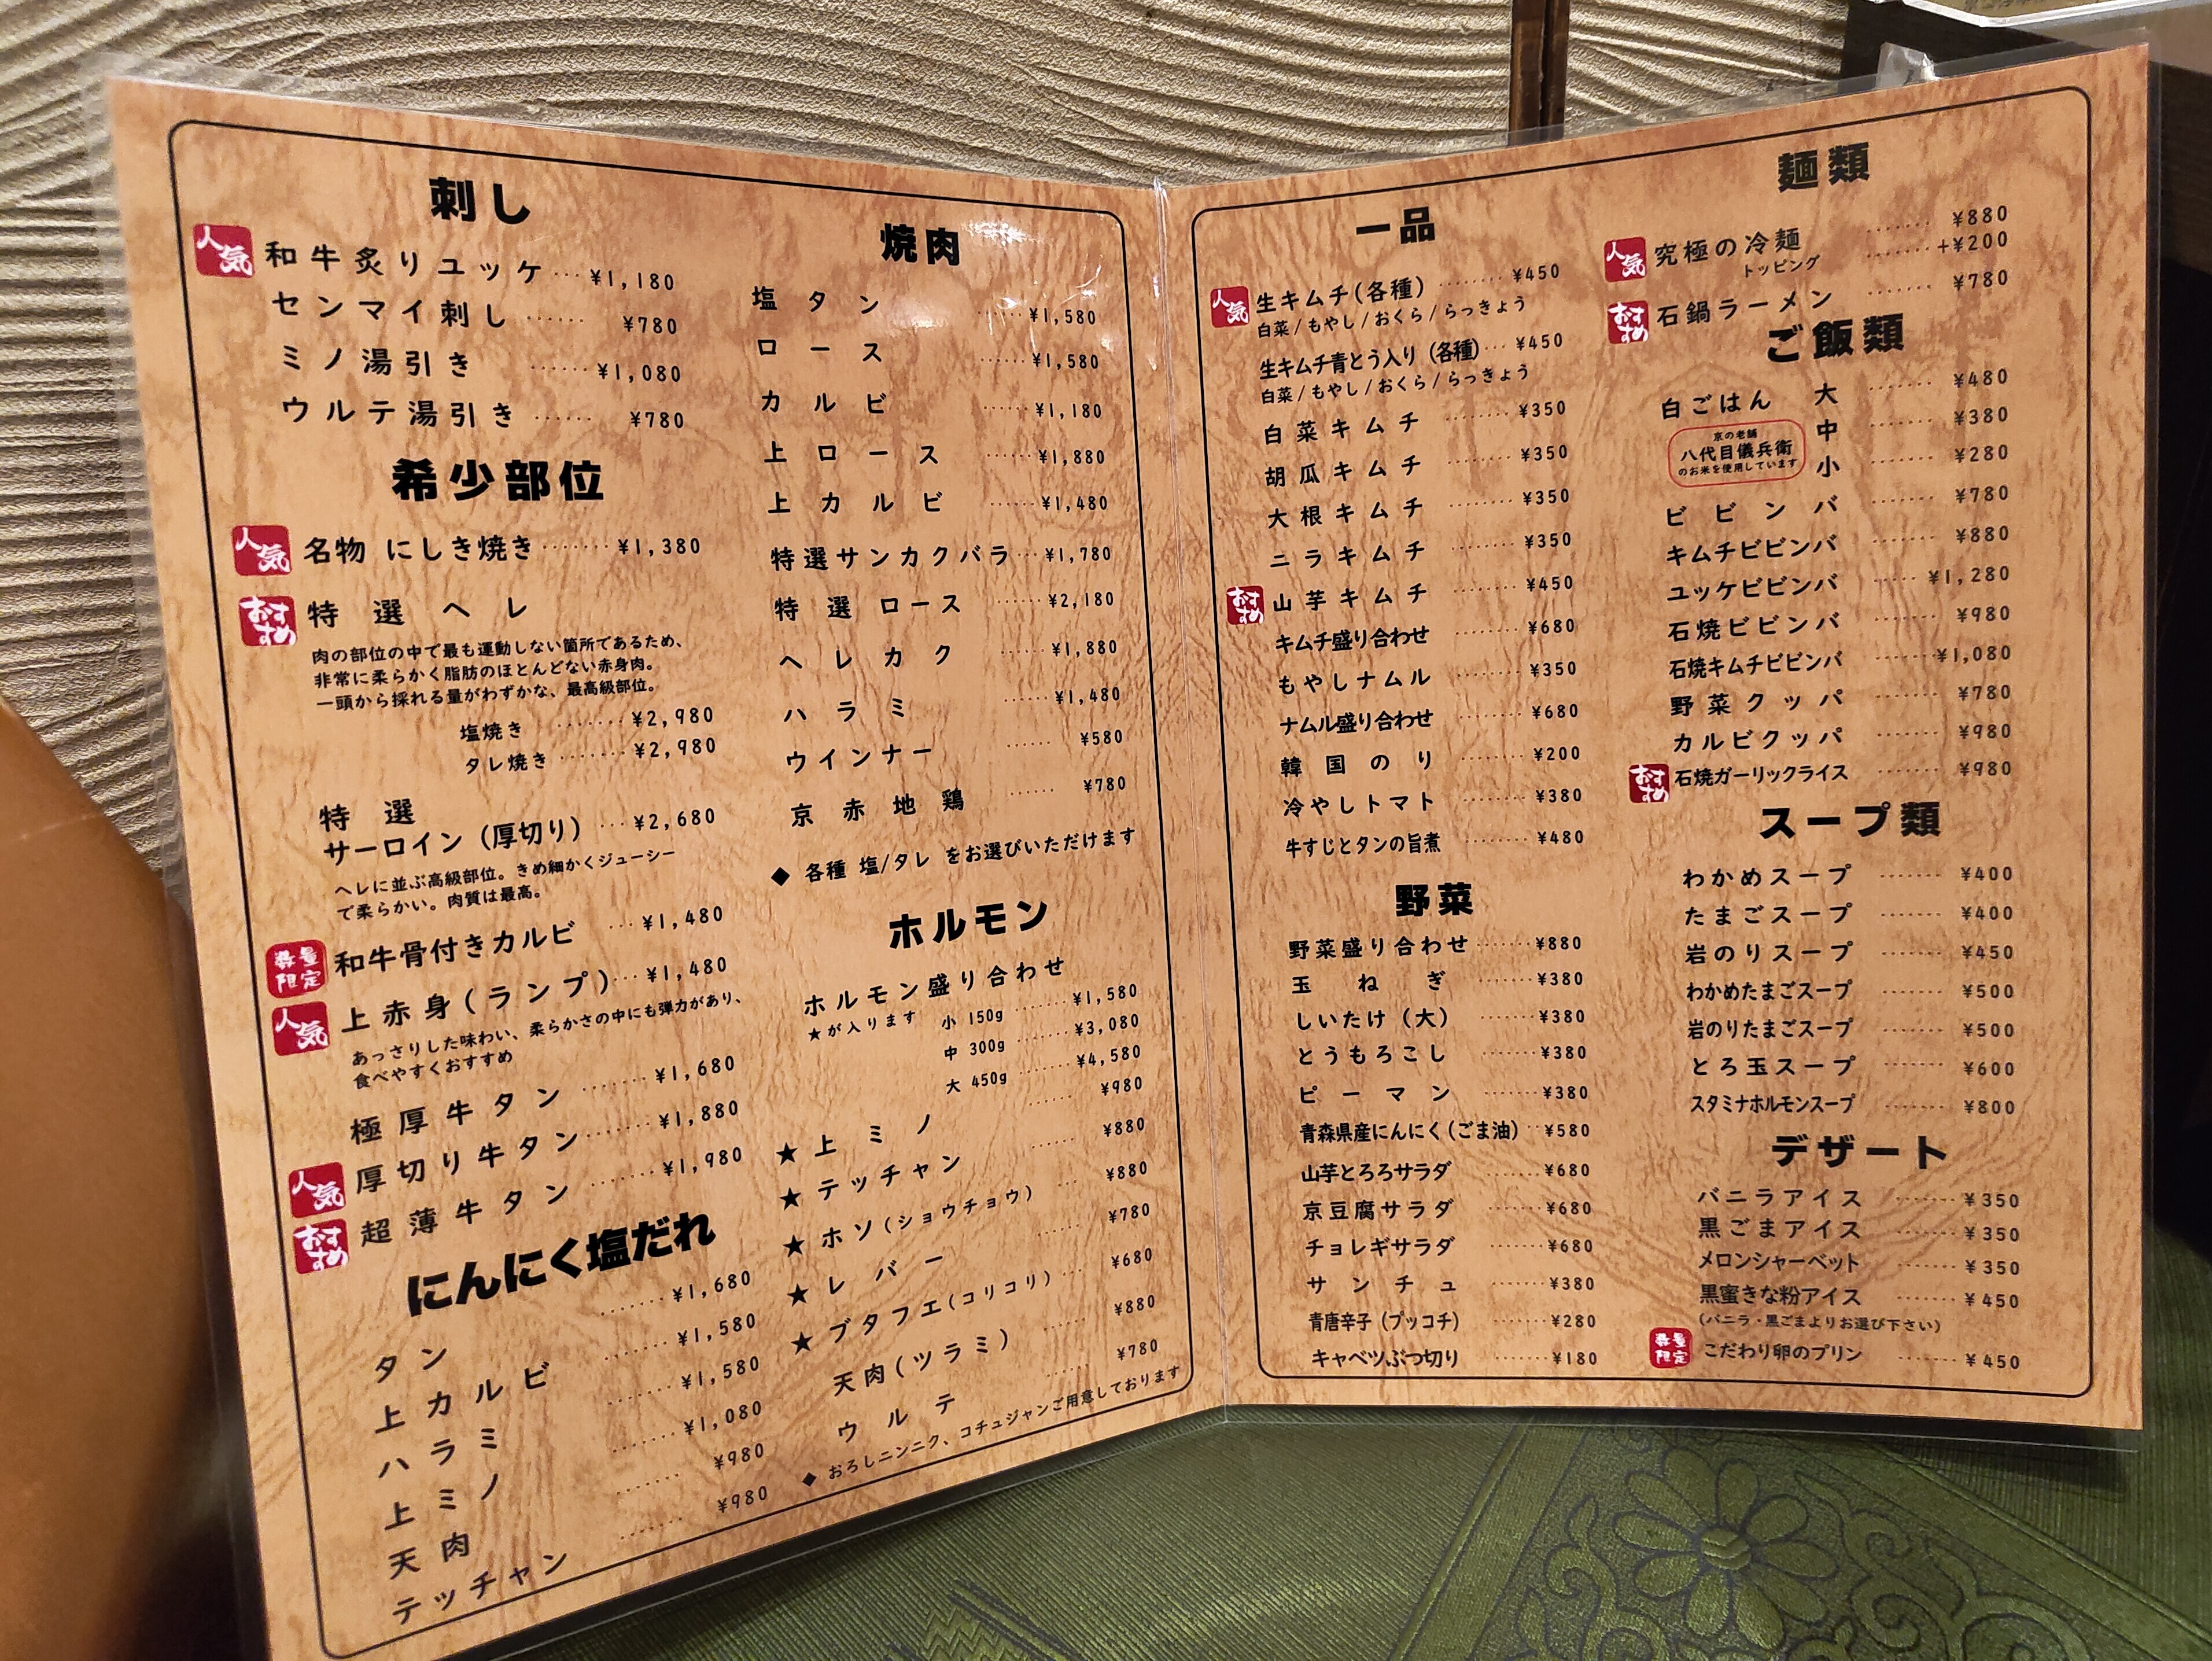 刺し
人気 和牛炙りユッケ ¥1,180
センマイ刺し ¥780
ミノ湯引き ¥1,080
ウルテ湯引き ¥780
希少部位
人気 名物 にしき焼き ¥1,380
おすすめ 特選ヘレ
肉の部位の中で最も運動しない箇所であるため、
非常に柔らかく脂肪のほとんどない赤身肉。
一頭から採れる量がわずかな、最高級部位。
塩焼き ¥2,980
タレ焼き ¥2,980
特選
サーロイン(厚切り) ¥2,680
ヘレに並ぶ高級部位。きめ細かくジューシー
で柔らかい。肉質は最高。
数量限定 和牛骨付きカルビ ¥1,480
人気 上赤身(ランプ) ¥1,480
あっさりした味わい、柔らかさの中にも弾力があり、
食べやすくおすすめ
極厚牛タン ¥1,680
人気 厚切り牛タン ¥1,880
おすすめ 超薄牛タン ¥1,980
にんにく塩だれ
タン ¥1,680
上カルビ ¥1,580
ハラミ ¥1,580
上ミノ ¥1,080
天肉 ¥980
テッチャン ¥980
焼肉
塩タン ¥1,580
ロース ¥1,580
カルビ ¥1,180
上ロース ¥1,880
上カルビ ¥1,480
特選サンカクバラ ¥1,780
特選ロース ¥2,180
ヘレカク ¥1,880
ハラミ ¥1,480
ウインナー ¥580
京赤地鶏 ¥780
◆ 各種 塩/タレ をお選びいただけます
ホルモン
ホルモン盛り合わせ
★が入ります 小 150g ¥1,580
中 300g ¥3,080
大 450g ¥4,580
★ 上ミノ ¥980
★ テッチャン ¥880
★ ホソ(ショウチョウ) ¥880
★ レバー ¥780
★ ブタフエ(コリコリ) ¥680
天肉(ツラミ) ¥880
ウルテ ¥780
◆ おろしニンニク、コチュジャンご用意しております
一品
人気 生キムチ(各種) ¥450
白菜/もやし/おくら/らっきょう
生キムチ青とう入り(各種) ¥450
白菜/もやし/おくら/らっきょう
白菜キムチ ¥350
胡瓜キムチ ¥350
大根キムチ ¥350
ニラキムチ ¥350
おすすめ 山芋キムチ ¥450
キムチ盛り合わせ ¥680
もやしナムル ¥350
ナムル盛り合わせ ¥680
韓国のり ¥200
冷やしトマト ¥380
牛すじとタンの旨煮 ¥480
野菜
野菜盛り合わせ ¥880
玉ねぎ ¥380
しいたけ(大) ¥380
とうもろこし ¥380
ピーマン ¥380
青森県産にんにく(ごま油) ¥580
山芋とろろサラダ ¥680
京豆腐サラダ ¥680
チョレギサラダ ¥680
サンチュ ¥380
青唐辛子(プッコチ) ¥280
キャベツぶつ切り ¥180
麺類
人気 究極の冷麺 ¥880
トッピング +¥200
おすすめ 石鍋ラーメン ¥780
ご飯類
白ごはん 大 ¥480
中 ¥380
小 ¥280
京の老舗
八代目儀兵衛
のお米を使用しています
ビビンバ ¥780
キムチビビンバ ¥880
ユッケビビンバ ¥1,280
石焼ビビンバ ¥980
石焼キムチビビンバ ¥1,080
野菜クッパ ¥780
カルビクッパ ¥980
おすすめ 石焼ガーリックライス ¥980
スープ類
わかめスープ ¥400
たまごスープ ¥400
岩のりスープ ¥450
わかめたまごスープ ¥500
岩のりたまごスープ ¥500
とろ玉スープ ¥600
スタミナホルモンスープ ¥800
デザート
バニラアイス ¥350
黒ごまアイス ¥350
メロンシャーベット ¥350
黒蜜きな粉アイス ¥450
(バニラ・黒ごまよりお選び下さい)
数量限定 こだわり卵のプリン ¥450